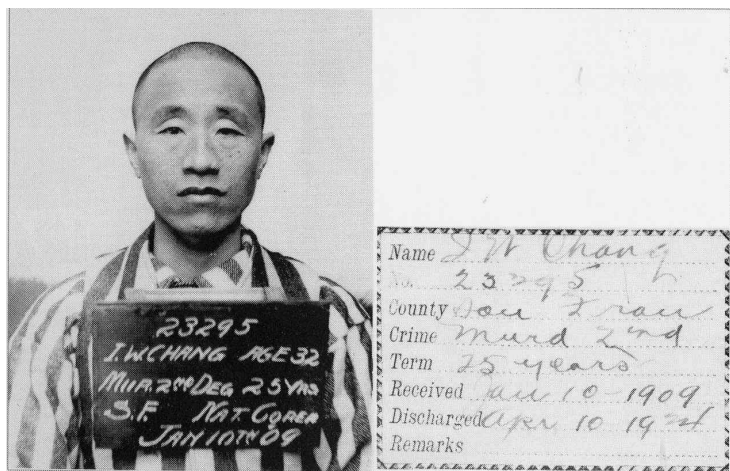 23295
I.W.CHANG AGE 32
MUR.2ND DEG 25 YRS
S.F. NAT. COREA
JAN 10TH 09
Name I W Chang
No. 23295
County San Fran
Crime Murd 2nd
Term 25 years
Received Jan 10-1909
Discharged Apr 10 19
Remarks